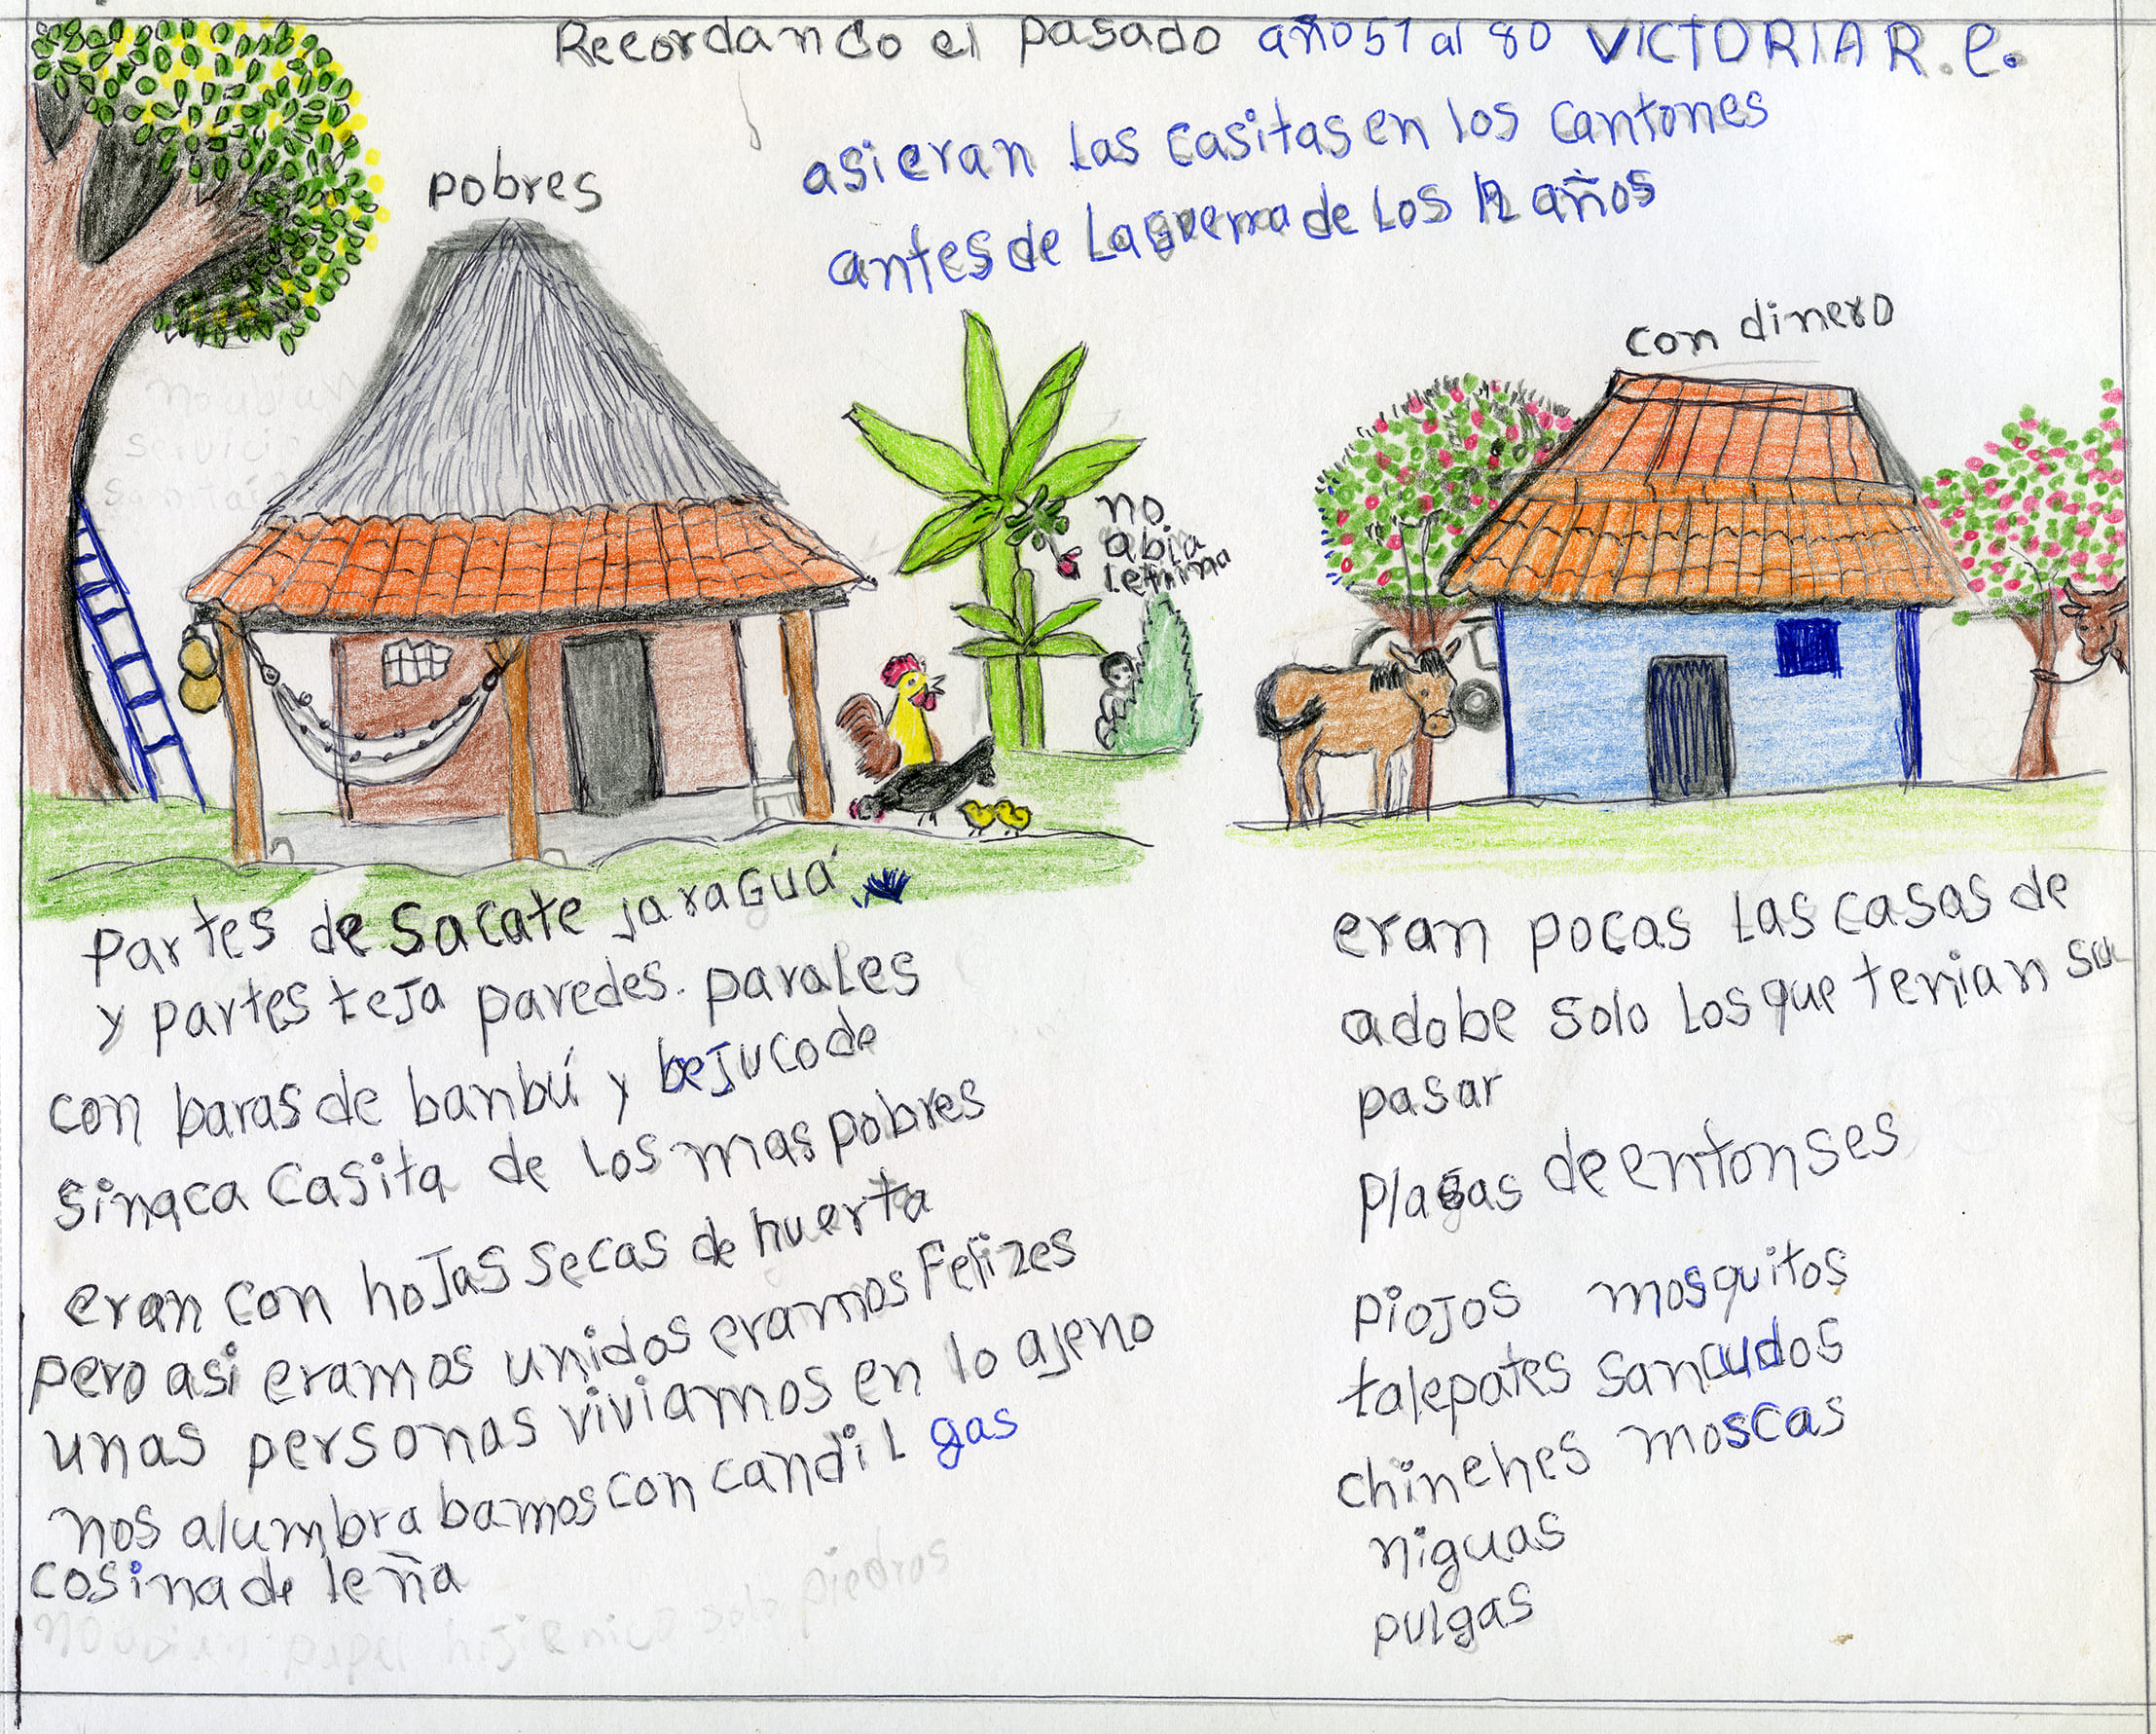 Recordando el pasado año 51 al 80 VICTORIA R. e.
asi eran las casitas en los cantones
antes de la guerra de los 12 años
pobres
con dinero
no ubian
servici
sanita
no
abia
letrina
partes de sacate jaraguá
y partes teja paredes. parales
con baras de banbú y bejuco de
sinaca casita de los mas pobres
eran con hojas secas de huerta
pero asi eramos unidos eramos Felizes
unas personas viviamos en lo ajeno
nos alumbrabamos con candil gas
cosina de leña
no avian papel hijienico solo piedras
eran pocas las casas de
adobe solo los que tenian su
pasar
plagas de entonses
piojos mosquitos
talepates sancudos
chinches moscas
niguas
pulgas